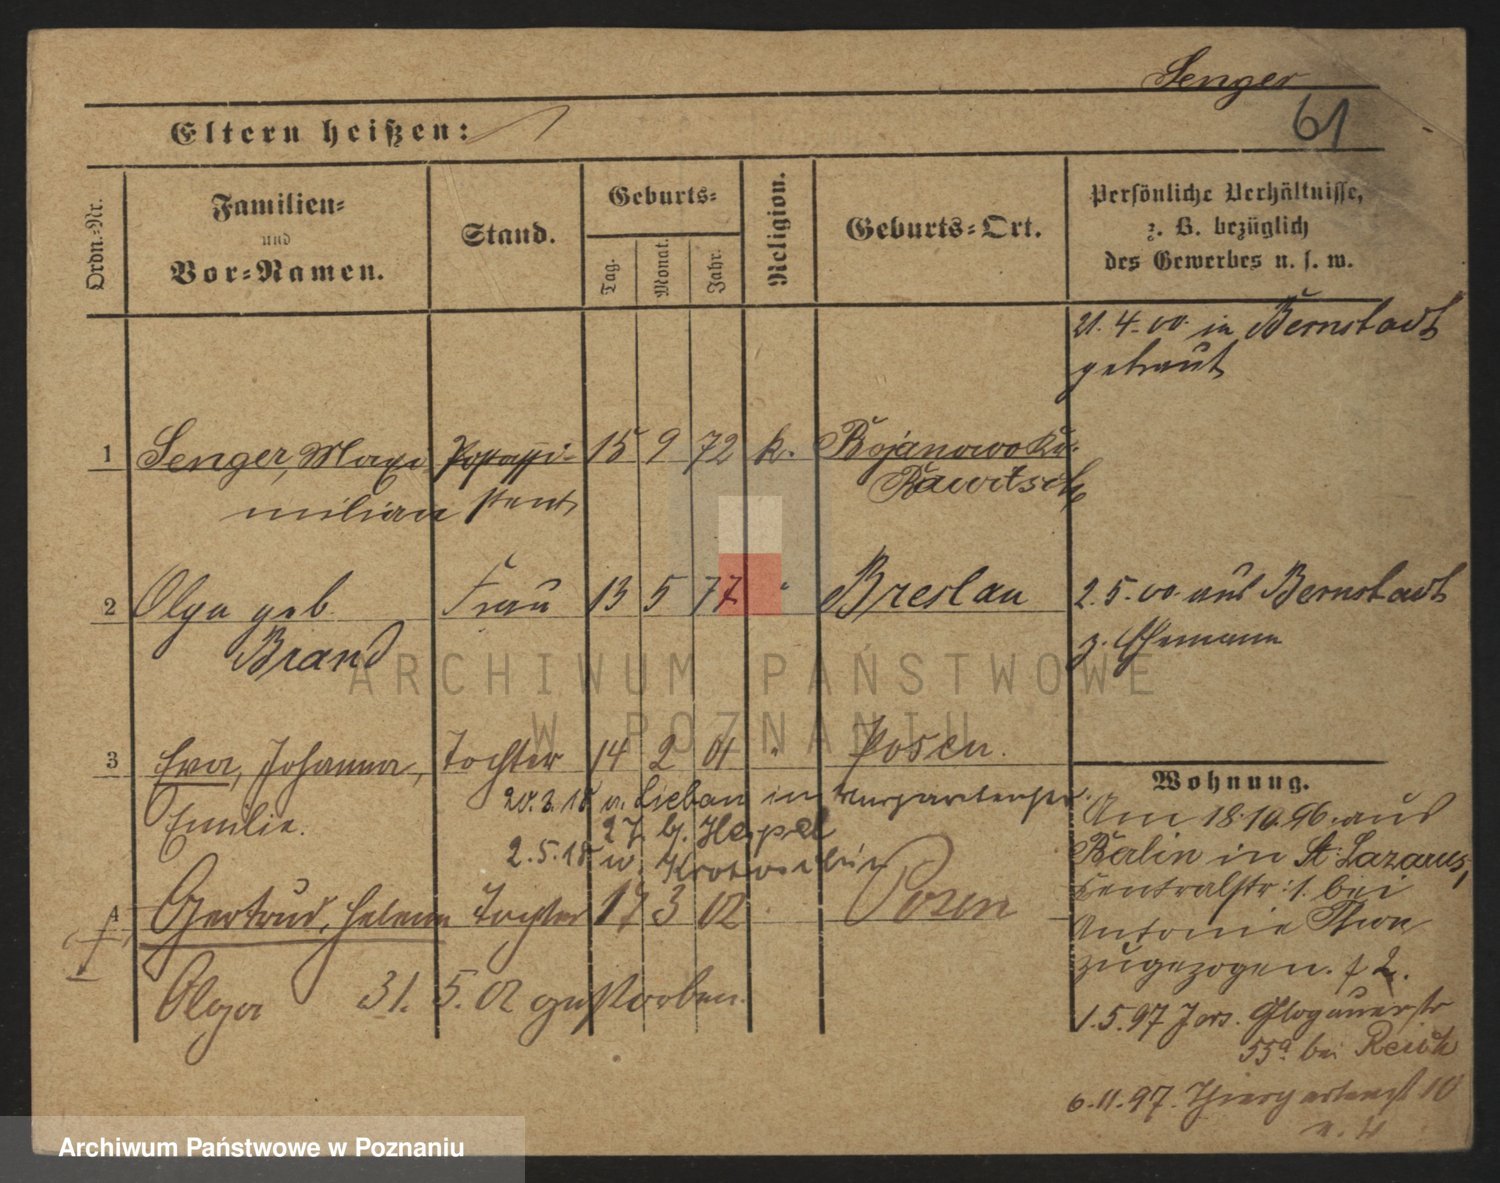 Senger
61
Eltern heißen:
Ordn.-Nr.
Familien-
und
Vor-Namen.
Stand.
Geburts-
Tag.
Monat.
Jahr.
Religion.
Geburts-Ort.
Persönliche Verhältnisse,
z. B. bezüglich
des Gewerbes u. s. w.
21.4.00 in Bernstadt
getraut
1 Senger, Maxi- 15 9 72 k. Bojanowo Kr.
milian Rawitsch
2 Olga geb. Frau 13 5 77 " Breslau
Brand
2.5.00 aus Bernstadt
z. Ehemann
3 Eva, Johanna, Tochter 14 2 01 " Posen.
Emilie.
20.3.18 in
27 b. Hepel
2.5.18 Krotoschin
4 Gertrud, Helene Tochter 17 3 02 Posen
Olga 31. 5. 02 gestorben.
Wohnung.
Am 18.10.96 aus
Berlin in St. Lazarus,
Centralstr. 1. bei
Antonie Thon
zugezogen.
1.5.97 Jers. Glogauerstr
55a bei Reich
6.11.97. Thiergartenst 10
ARCHIWUM PAŃSTWOWE
W POZNANIU
Archiwum Państwowe w Poznaniu